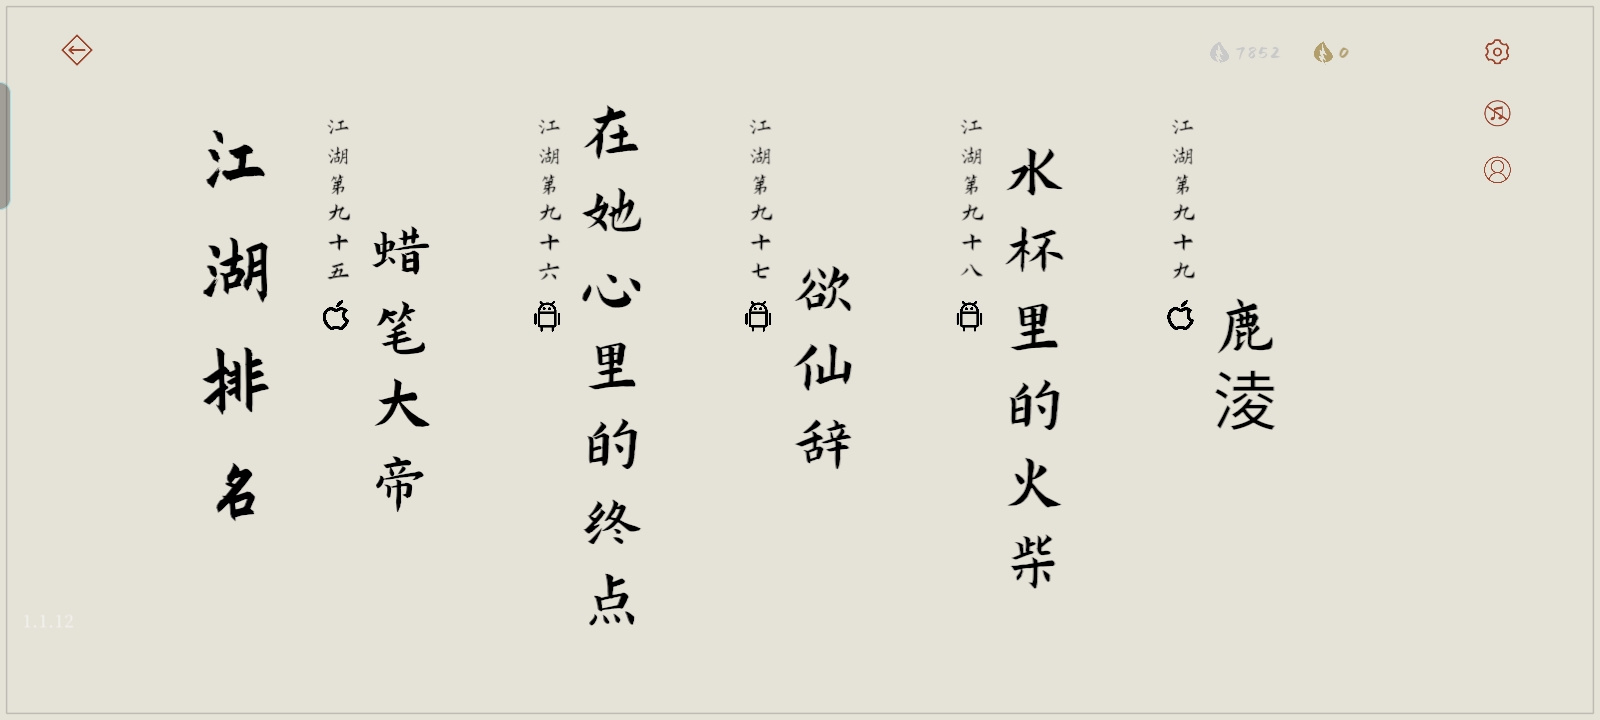 7852
0
江湖排名
江湖第九十五
蜡笔大帝
江湖第九十六
在她心里的终点
江湖第九十七
欲仙辞
江湖第九十八
水杯里的火柴
江湖第九十九
鹿淩
1.1.12